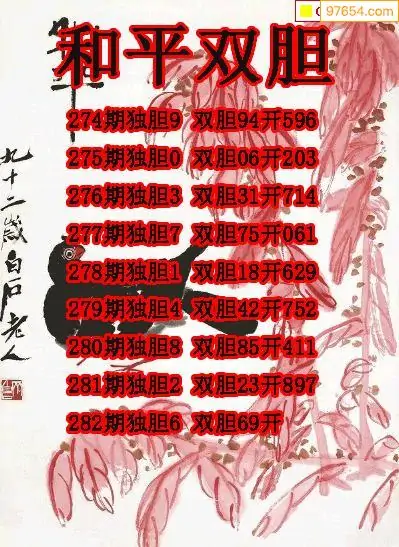 97654.com
和平双胆
274期独胆9 双胆94开596
275期独胆0 双胆06开203
276期独胆3 双胆31开714
277期独胆7 双胆75开061
278期独胆1 双胆18开629
279期独胆4 双胆42开752
280期独胆8 双胆85开411
281期独胆2 双胆23开897
282期独胆6 双胆69开
九十二岁白石老人